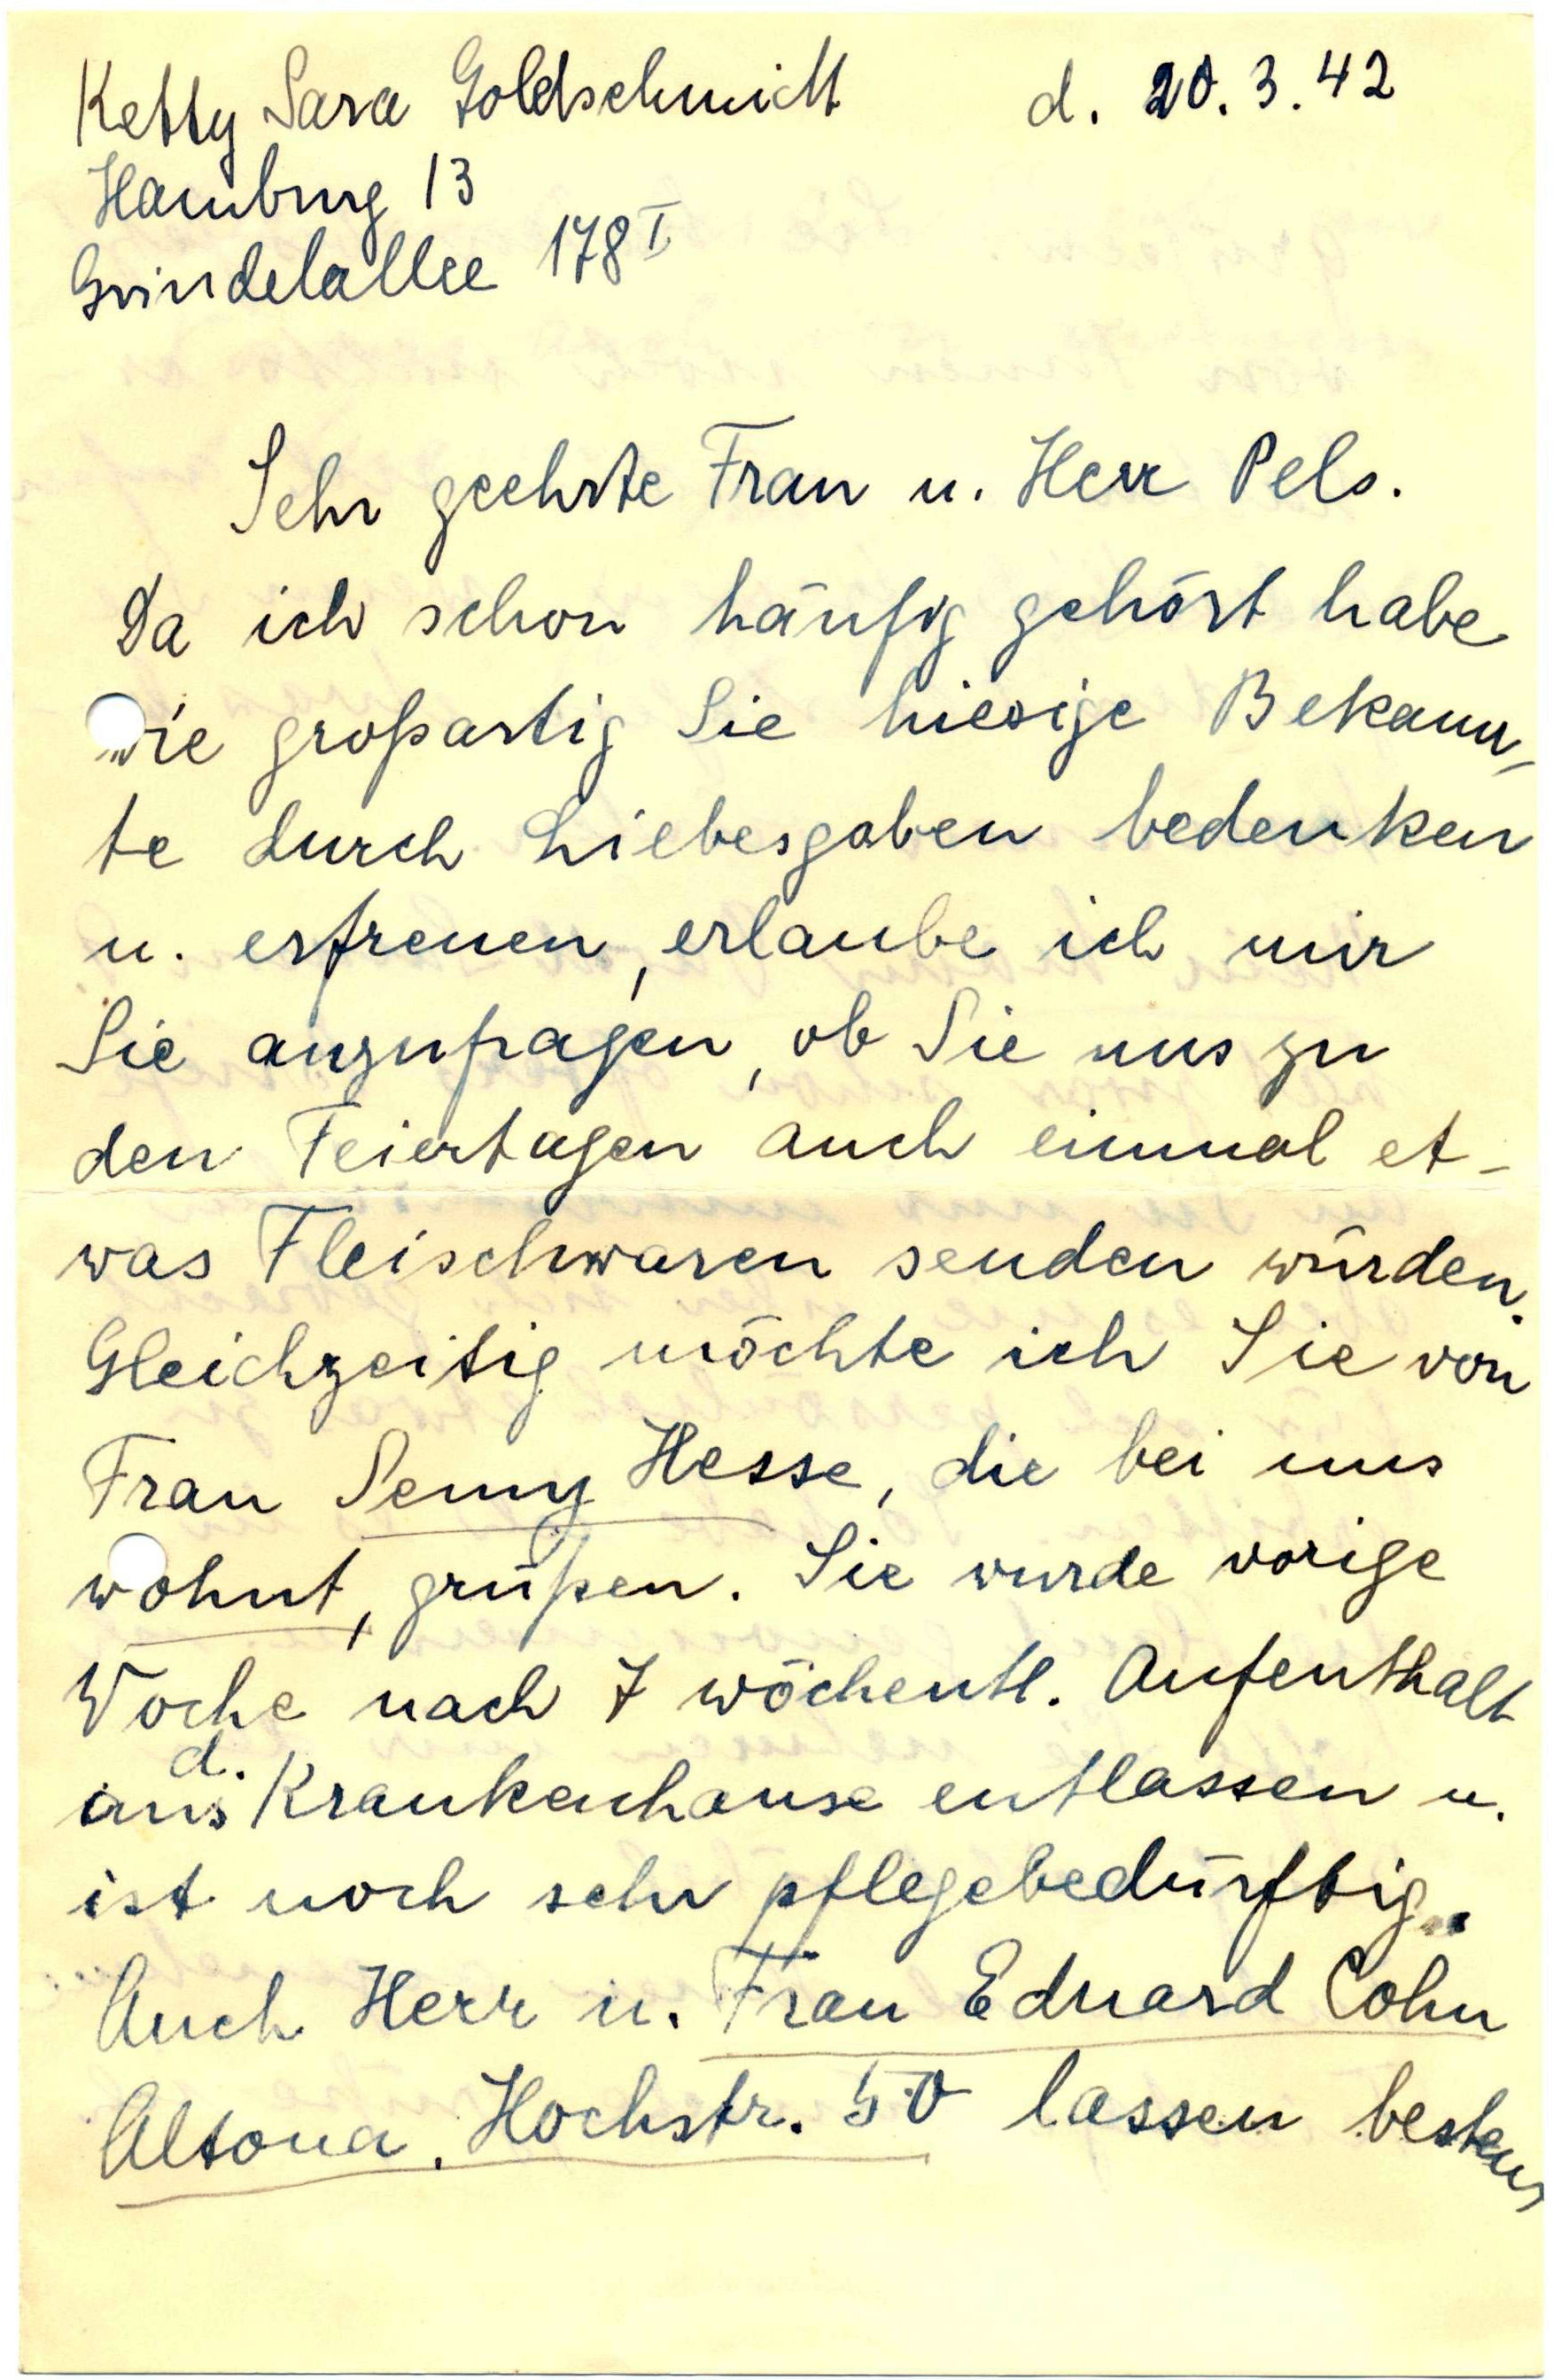 Ketty Sara Goldschmidt d. 20.3.42
Hamburg 13
Grindelallee 178 I
Sehr geehrte Frau u. Herr Pels.
Da ich schon häufig gehört habe
wie großartig Sie hiesige Bekann-
te durch Liebesgaben bedenken
u. erfreuen, erlaube ich mir
Sie anzufragen, ob Sie uns zu
den Feiertagen auch einmal et-
was Fleischwaren senden würden.
Gleichzeitig möchte ich Sie von
Frau Senny Hesse, die bei uns
wohnt, grüßen. Sie wurde vorige
Woche nach 7 wöchentl. Aufenthalt
aus d. Krankenhause entlassen u.
ist noch sehr pflegebedürftig.
Auch Herr u. Frau Eduard Cohn
Altona, Hochstr. 50 lassen bestens